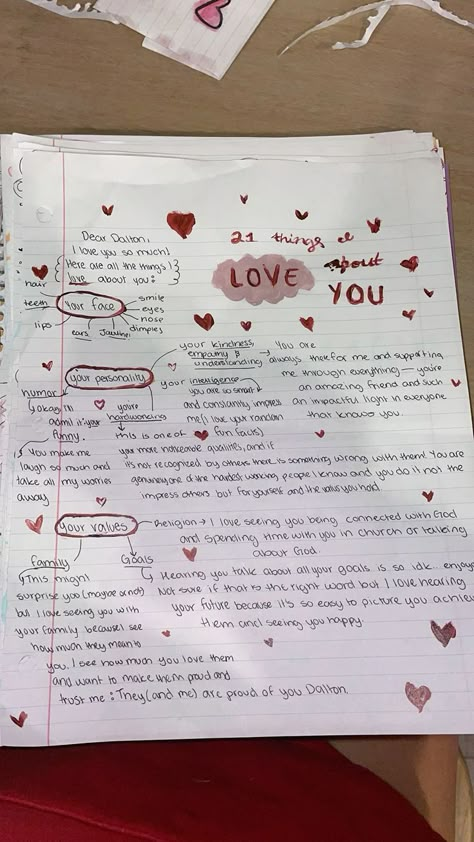 21 things I
LOVE about
YOU
Dear Dalton,
I love you so much!
Here are all the things I
love about you:
your face
hair
teeth
lips
ears
Jawline
dimples
nose
eyes
smile
your personality
your kindness
empathy &
understanding → You are
always there for me and supporting
me through everything — you're
an amazing friend and such
an impactful light in everyone
that knows you.
your intelligence
you are so smart
and constantly impress
me (I love your random
fun facts)
humor
okay I'll
admit it your
funny.
You make me
laugh so much and
take all my worries
away
you're
hardworking
this is one of
your more noticeable qualities, and if
it's not recognized by others there is something wrong with them! You are
genuinely one of the hardest working people I know and you do it not the
impress others but for yourself and the values you hold.
your values
Religion → I love seeing you being connected with God
and spending time with you in church or talking
about God.
Goals
Hearing you talk about all your goals is so idk.. enjoye
Not sure if that's the right word but I love hearing
your future because it's so easy to picture you achiev
them and seeing you happy.
family
This might
surprise you (maybe or not)
but I love seeing you with
your family because I see
how much they mean to
you. I see how much you love them
and want to make them proud and
trust me: They (and me) are proud of you Dalton.